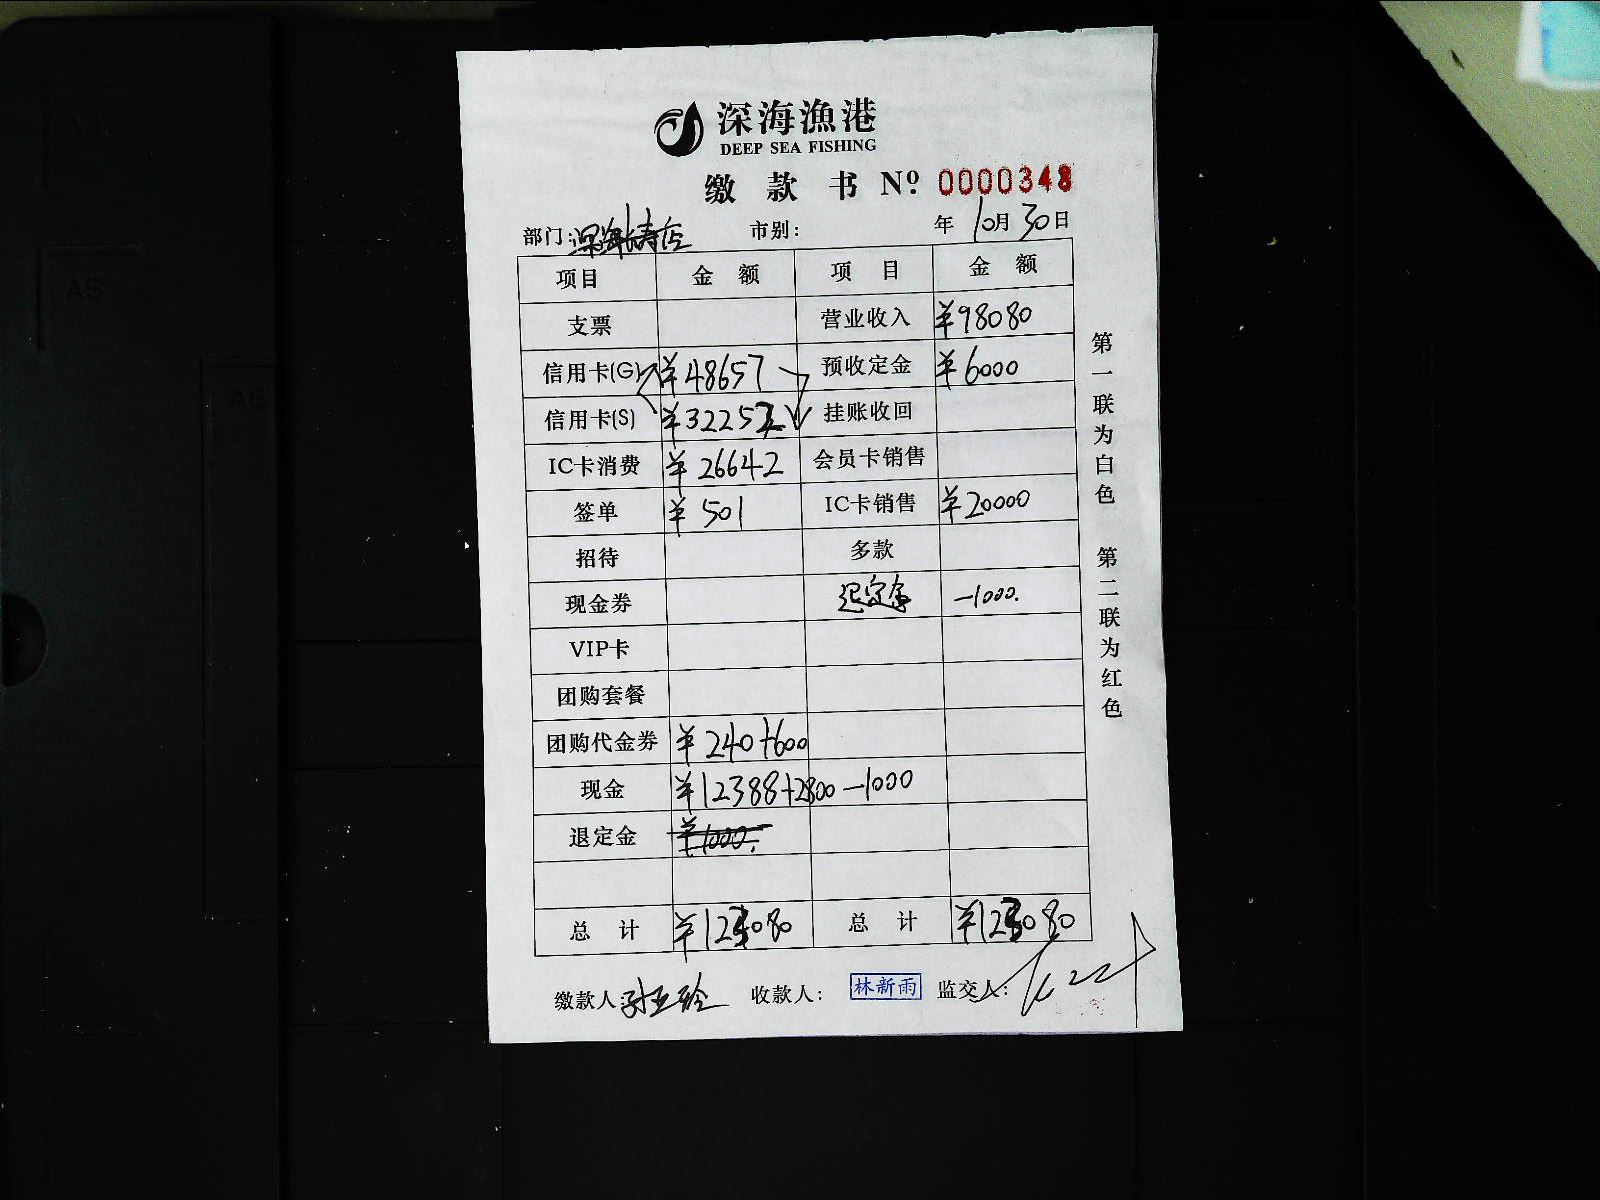 深海漁港
DEEP SEA FISHING
缴款书 Nº 0000348
部门: 深海长寿店 市别: 年 10月 30日
项目 金额 项目 金额
支票 营业收入 ¥98080
信用卡(G) ¥48657 预收定金 ¥6000
信用卡(S) ¥32252 挂账收回
IC卡消费 ¥26642 会员卡销售
签单 ¥501 IC卡销售 ¥20000
招待 多款
现金券 退定金 -1000.
VIP卡
团购套餐
团购代金券 ¥240+600
现金 ¥12388+2800-1000
退定金 ¥1000.
总计 ¥123080 总计 ¥123080
缴款人: 收款人: 林新雨 监交人:
第一联为白色 第二联为红色
A5
A6